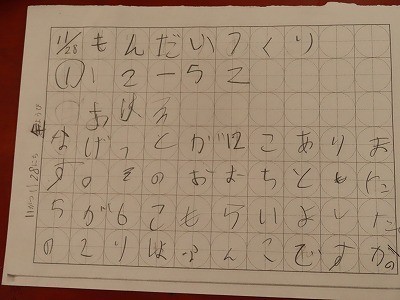 11/28 もんだいつくり
① 12-52
なげっとが12こありま
す。そのおおちとも
らが6こもらいました。
のこりはなんこですか
11がつ28にち 金ようび